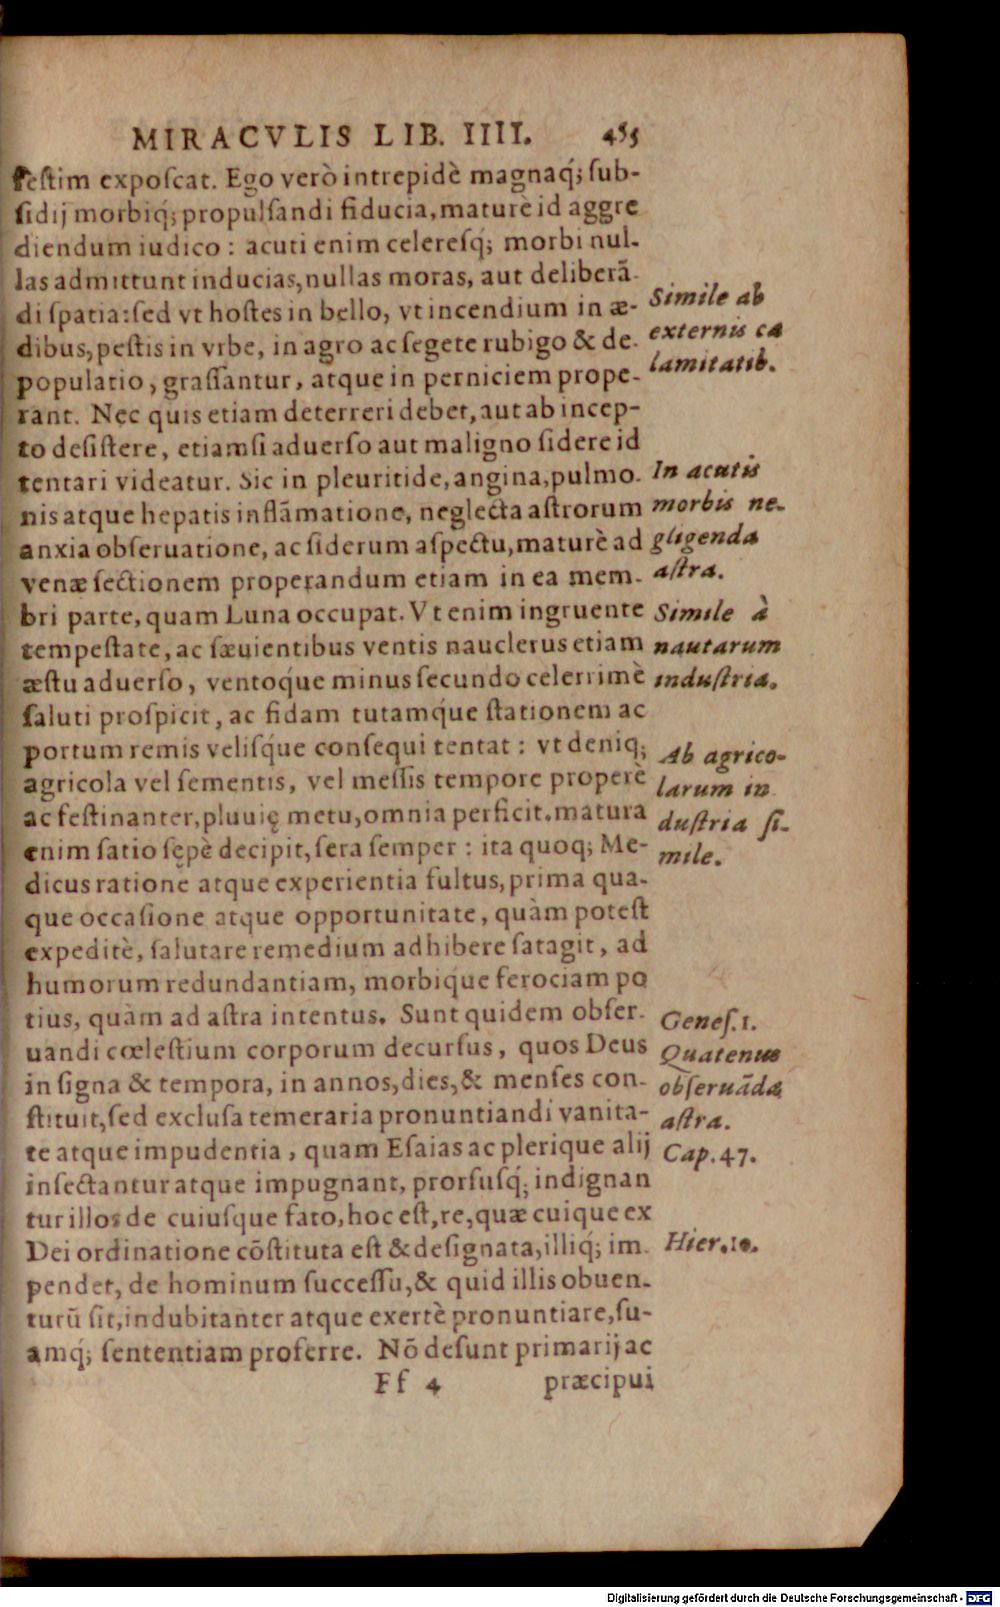 MIRACVLIS LIB. IIII. 455
festim exposcat. Ego verò intrepidè magnaq́; sub-
sidij morbiq́; propulsandi fiducia, maturè id aggre
diendum iudico: acuti enim celeresq́; morbi nul-
las admittunt inducias, nullas moras, aut deliberã-
di spatia: sed vt hostes in bello, vt incendium in æ-
dibus, pestis in vrbe, in agro ac segete rubigo & de-
populatio, grassantur, atque in perniciem prope-
rant. Nec quis etiam deterreri debet, aut ab incep-
to desistere, etiamsi aduerso aut maligno sidere id
tentari videatur. Sic in pleuritide, angina, pulmo-
nis atque hepatis inflãmatione, neglecta astrorum
anxia obseruatione, ac siderum aspectu, maturè ad
venæ sectionem properandum etiam in ea mem-
bri parte, quam Luna occupat. Vt enim ingruente
tempestate, ac sæuientibus ventis nauclerus etiam
æstu aduerso, ventoq́ue minus secundo celerrimè
saluti prospicit, ac fidam tutamq́ue stationem ac
portum remis velisq́ue consequi tentat: vt deniq;
agricola vel sementis, vel messis tempore properè
ac festinanter, pluuię metu, omnia perficit. matura
enim satio sępè decipit, sera semper: ita quoq; Me-
dicus ratione atque experientia fultus, prima qua-
que occasione atque opportunitate, quàm potest
expeditè, salutare remedium adhibere satagit, ad
humorum redundantiam, morbiq́ue ferociam po
tius, quàm ad astra intentus. Sunt quidem obser-
uandi cœlestium corporum decursus, quos Deus
in signa & tempora, in annos, dies, & menses con-
stituit, sed exclusa temeraria pronuntiandi vanita-
te atque impudentia, quam Esaias ac plerique alij
insectantur atque impugnant, prorsusq́; indignan
tur illos de cuiusque fato, hoc est, re, quæ cuique ex
Dei ordinatione cõstituta est & designata, illiq́; im-
pendet, de hominum successu, & quid illis obuen-
turũ sit, indubitanter atque exertè pronuntiare, su-
amq́; sententiam proferre. Nõ desunt primarij ac
Ff 4 præcipui
Simile ab
externis ca
lamitatib.
In acutis
morbis ne-
gligenda
astra.
Simile à
nautarum
industria.
Ab agrico-
larum in
dustria si-
mile.
Genes. 1.
Quatenus
obseruãda
astra.
Cap. 47.
Hier. 10.
Digitalisierung gefördert durch die Deutsche Forschungsgemeinschaft - DFG